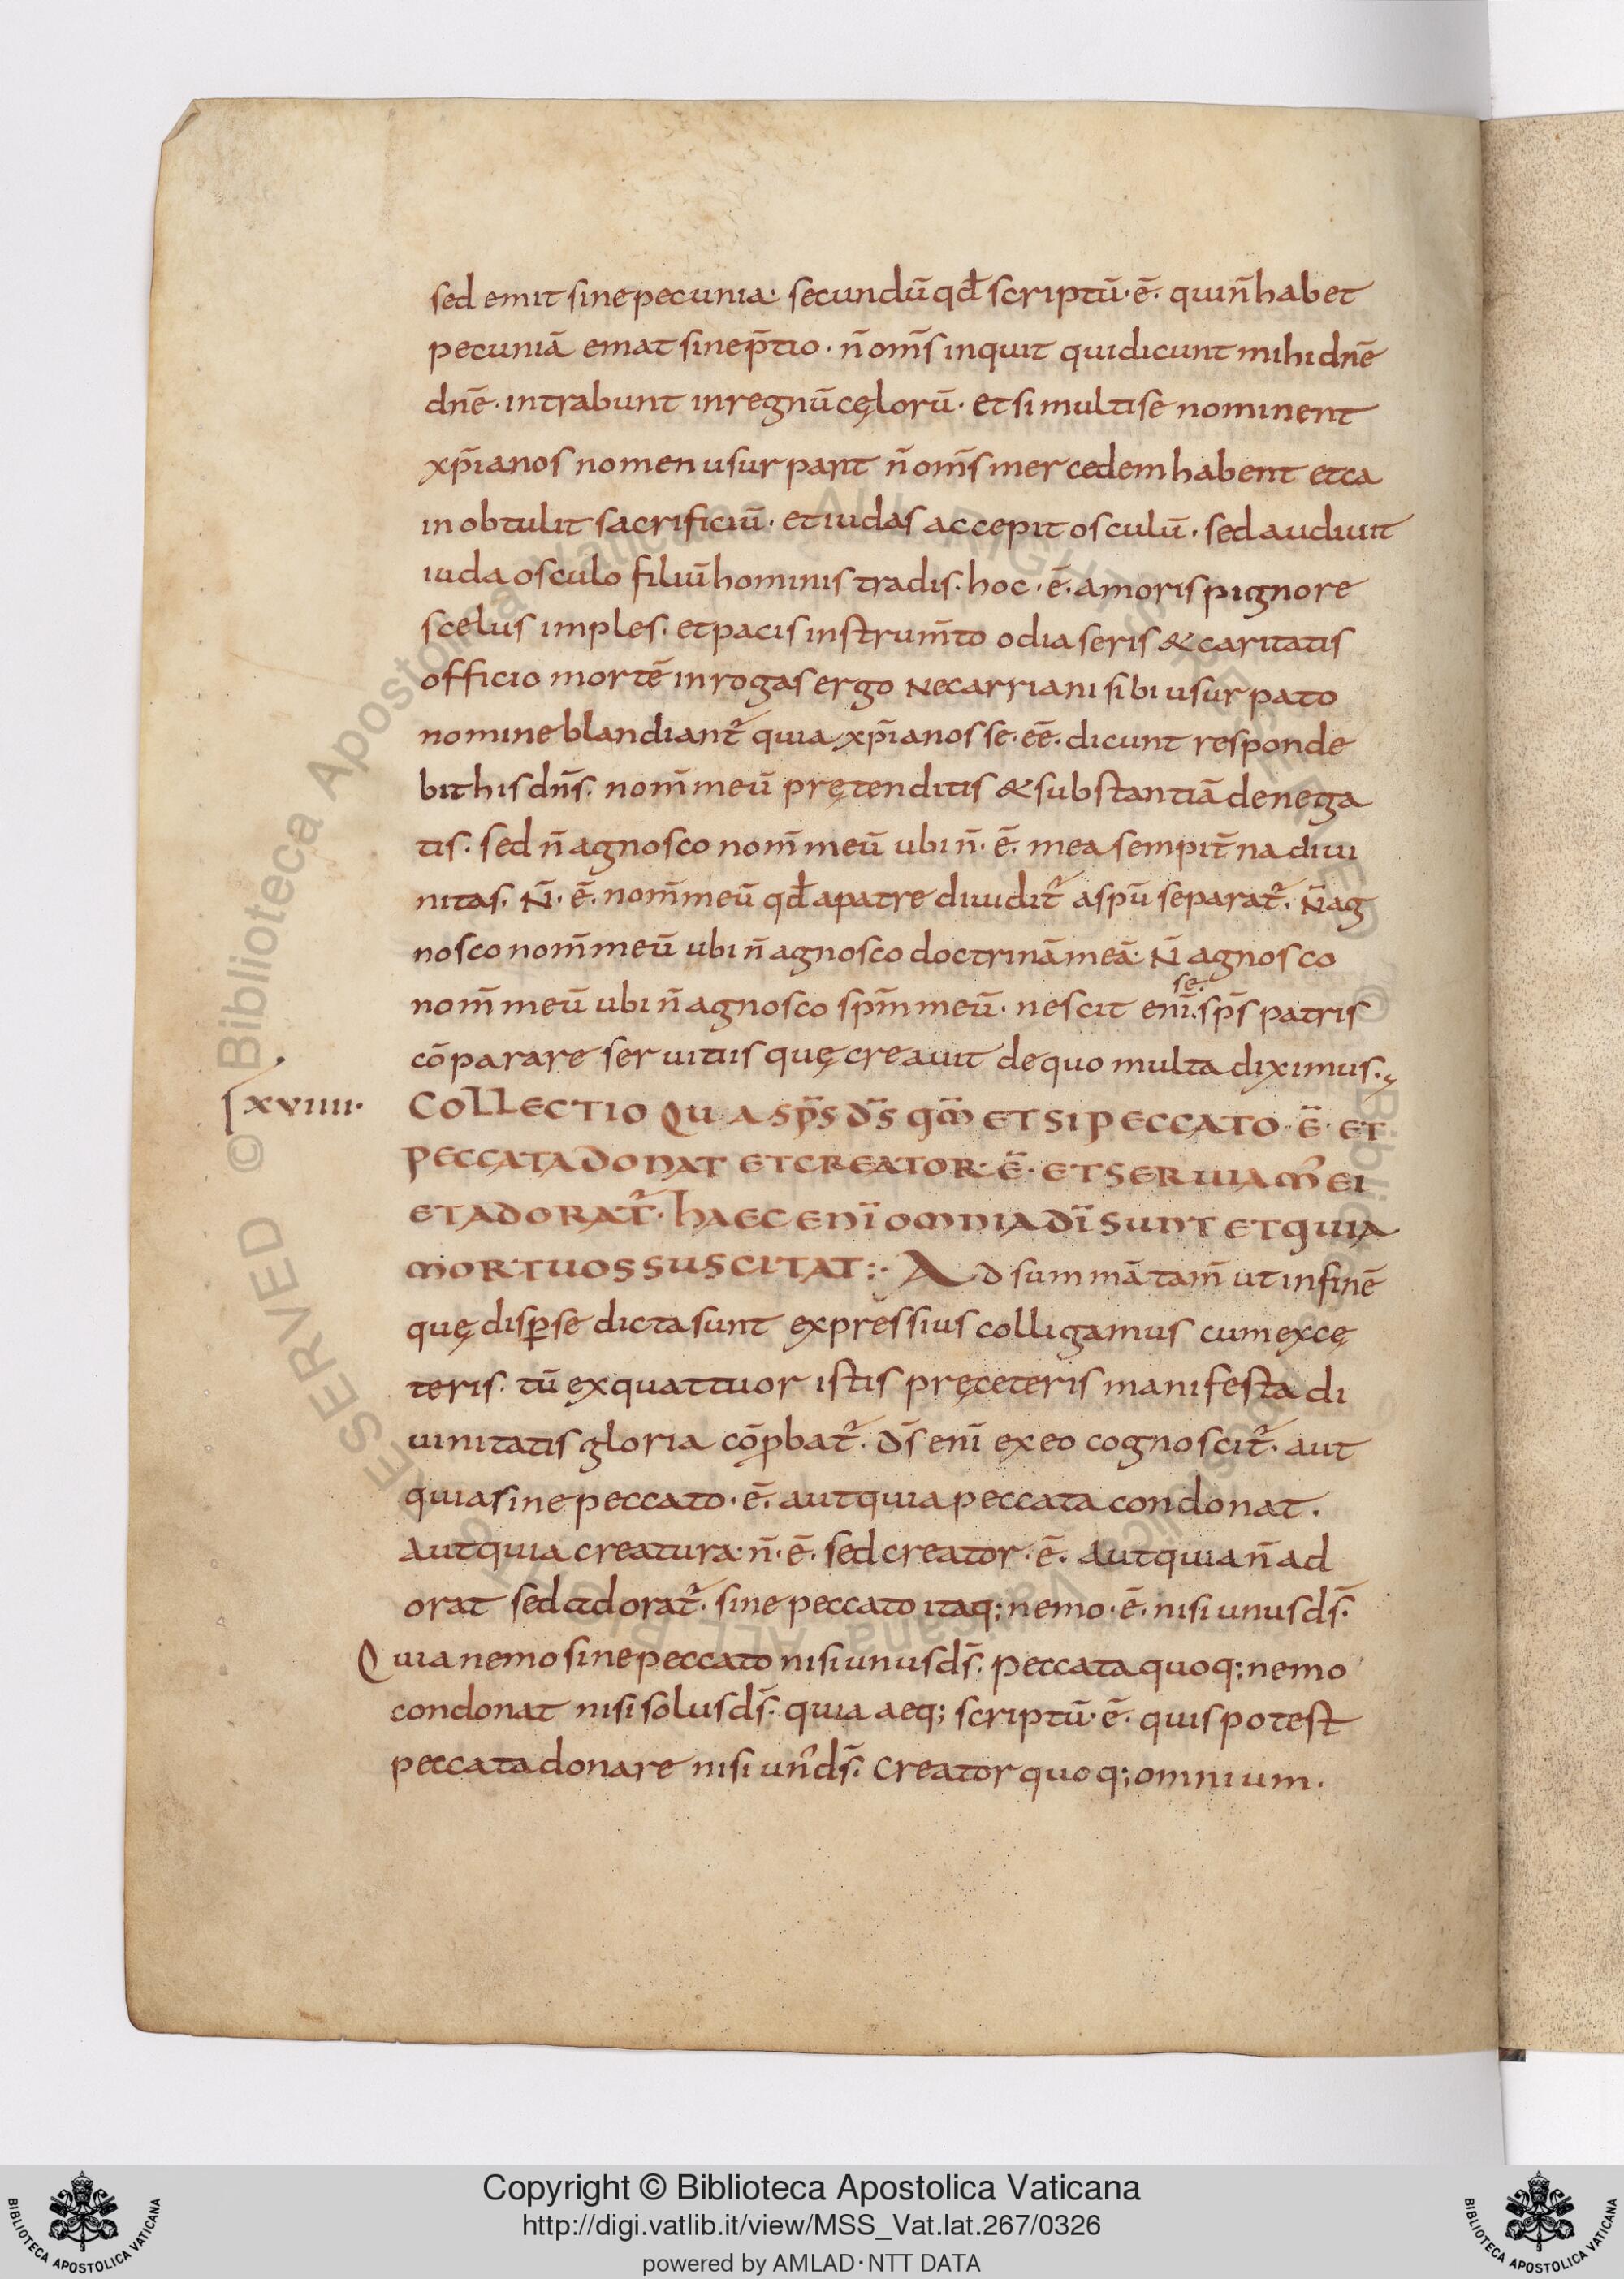 sed emit sine pecunia· secundū qđ scriptū·ē· qui n̄ habet
pecuniā emat sine p̄tio· n̄ om̄s inquit qui dicunt mihi dn̄e
dn̄e· intrabunt in regnū cęlorū· et si multi se nominent
xp̄ianos nomen usurpant n̄ om̄s mercedem habent et ca
in obtulit sacrificiū· et iudas accepit osculū· sed audiuit
iuda osculo filiū hominis tradis· hoc·ē· amoris pignore
scelus imples· et pacis instrum̄to odia seris & caritatis
officio mortē inrogas ergo Nec arriani sibi usurpato
nomine blandiant᷑ quia xp̄ianos se·eē· dicunt responde
bit his dn̄s· nom̄ meū prętenditis & substantiā denega
tis· sed n̄ agnosco nom̄ meū ubi n̄·ē· mea sempit̄na diui
nitas· N̄·ē· nom̄ meū qđ a patre diuidit᷑ a spū separat᷑· N̄ ag
nosco nom̄ meū ubi n̄ agnosco doctrinā meā· N̄ agnosco
se·
nom̄ meū ubi n̄ agnosco spm̄ meū· nescit enī· sp̄s patris
cōparare seruitiis quę creauit de quo multa diximus·
xviiii·
COLLECTIO QUA SP̄S D̄S QM̄ ET SI PECCATO·Ē· ET
PECCATA DONAT ET CREATOR·Ē· ET SERUIAM᷑ EI
ET ADORAT᷑· HAEC ENĪ OMNIA DĪ SUNT ET QUIA
MORTUOS SUSCITAT:· Ad summā tam̄ ut in finē
quę disꝑse dicta sunt expressius colligamus cum ex cę
teris· tū ex quattuor istis pręceteris manifesta di
uinitatis gloria cōꝓbat᷑· d̄s enī ex eo cognoscit᷑· aut
quia sine peccato·ē· aut quia peccata condonat·
Aut quia creatura·n̄·ē· sed creator·ē· Aut quia n̄ ad
orat sed adorat᷑· sine peccato itaq; nemo·ē· nisi unus d̄s·
Quia nemo sine peccato nisi unus d̄s· peccata quoq; nemo
condonat nisi solus d̄s· quia aeq; scriptū·ē· quis potest
peccata donare nisi un᷒ d̄s· Creator quoq; omnium·
Copyright © Biblioteca Apostolica Vaticana
http://digi.vatlib.it/view/MSS_Vat.lat.267/0326
powered by AMLAD·NTT DATA
BIBLIOTECA APOSTOLICA VATICANA
BIBLIOTECA APOSTOLICA VATICANA